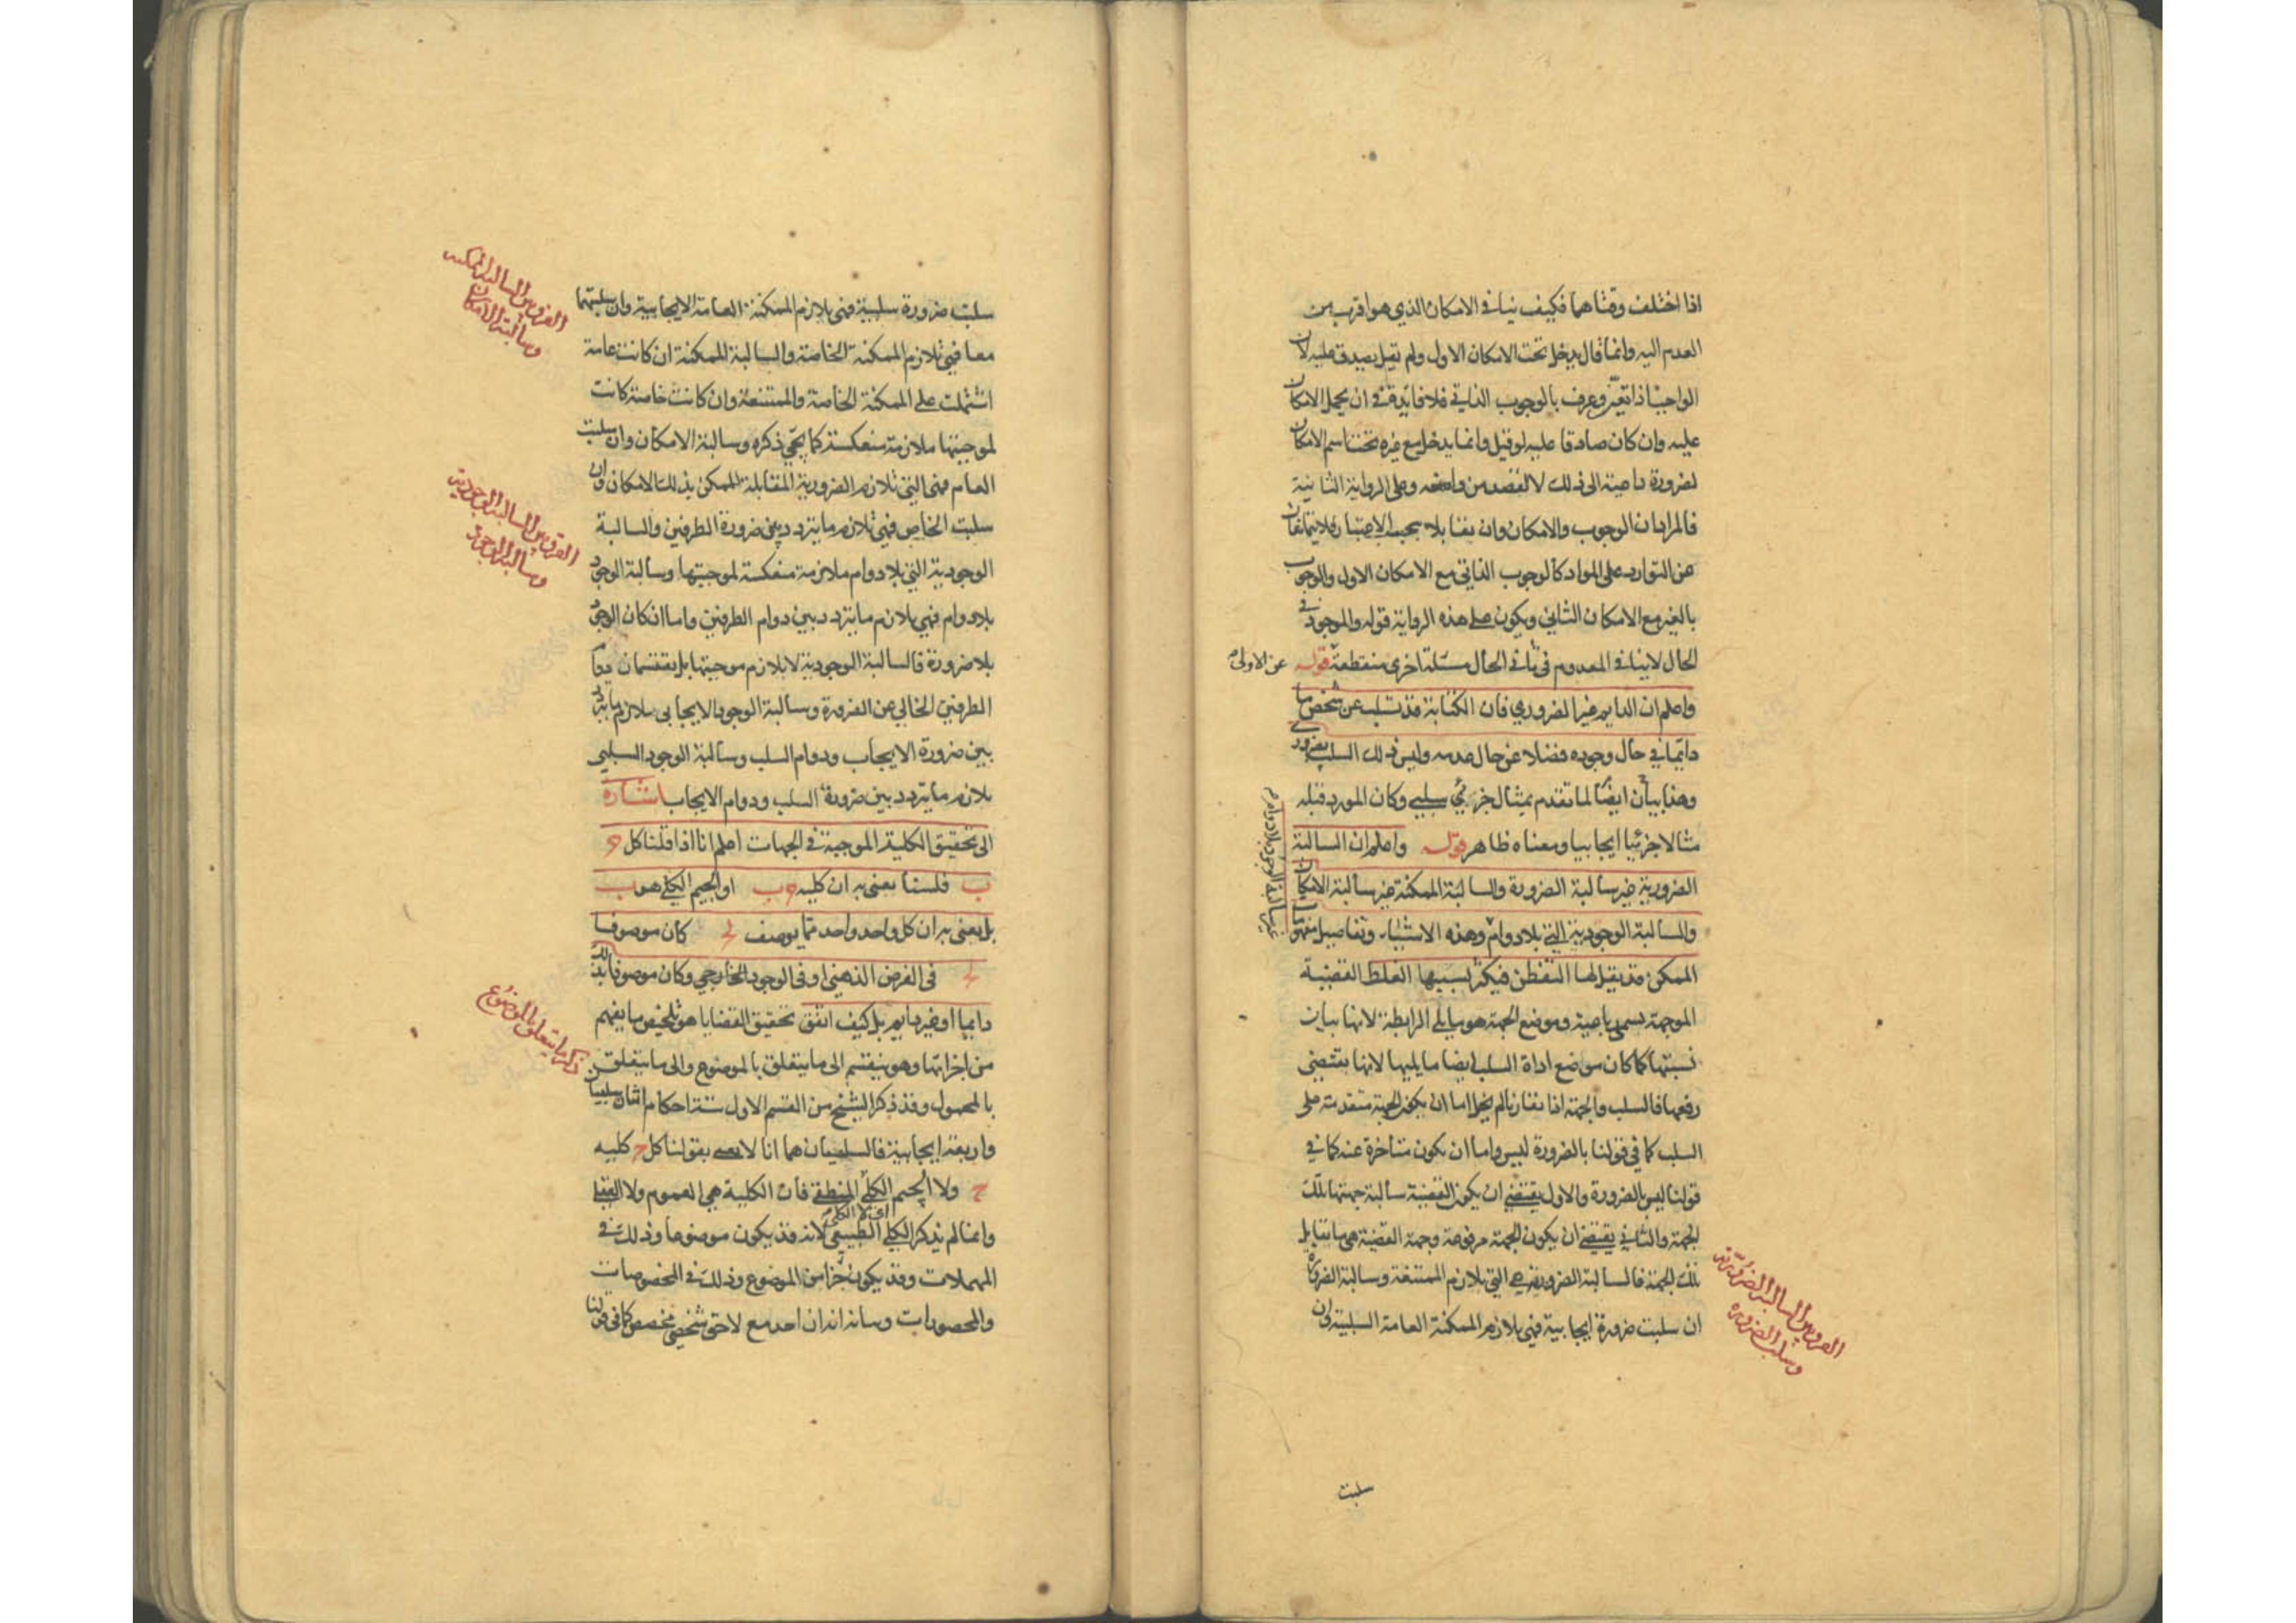 اذا اختلف وقتاهما فكيف ينافي الامكان الذي هو اقرب من
العدم اليه وانما قال يدخل تحت الامكان الاول ولم يقل يصدق عليه لان
الواجب اذا تعين وعرف بالوجوب الذاتي فلا فائدة في ان يحمل الامكان
عليه وان كان صادقا عليه لو قيل وانما يدخل مع غيره تحت اسم الامكان
لضرورة داعية الى ذلك لا لقصد من واضعه وعلى الرواية الثانية
فالمراد ان الوجوب والامكان وان تقابلا بحسب الاعتبار فلا يتمانعان
عن التوارد على المواد كالوجوب الذاتي مع الامكان الاول والوجوب
بالغير مع الامكان الثاني ويكون على هذه الرواية قوله والموجود في
الحال لاينافي المعدوم في ثاني الحال مسئلة اخرى منقطعة قوله
عن الاولى
واعلم ان الدايم غير الضروري فان الكتابة قد تسلب عن شخص ما
دايما في حال وجوده فضلا عن حال عدمه وليس ذلك السلب بضروري
وهذا بيان ايضا لما تقدم بمثال جزئي سلبي وكان المورد قبله
مثالا جزئيا ايجابيا ومعناه ظاهر قوله واعلم ان السالبة
الضرورية غير سالبة الضرورة والسالبة الممكنة غير سالبة الامكان
والسالبة الوجودية التي بلا دوام وهذه الاشياء وتفاصيل مفهوما
غير سالبة الوجود بلا دوام
الممكن قد يقل لها التفطن فيكثر بسببها الغلط القضية
الموجهة تسمى رباعية وموضع الجهة هو ما يلي الرابطة لانها بيان
نسبتها كما كان موضع اداة السلب ايضا ما يليها لانها يقتضي
رفعها فالسلب والجهة اذا تقارنا لم يخل اما ان يكون الجهة متقدمة على
السلب كما في قولنا بالضرورة ليس واما ان يكون متاخرة عنه كما في
قولنا ليس بالضرورة والاول يقتضي ان يكون القضية سالبة جهتها تلك
الجهة والثاني يقتضي ان يكون الجهة مرفوعة وجهة القضية هي ما تقابل
تلك الجهة فالسالبة الضرورية هي التي تلازم الممتنعة وسالبة الضرورة
ان سلبت ضرورة ايجابية فهي يلازم الممكنة العامة السلبية وان
الفرق بين السالبة الضرورية
وسلب الضرورة
سلبت
سلبت ضرورة سلبية فهي يلازم الممكنة العامة الايجابية وان سلبتهما
معا فهي تلازم الممكنة الخاصة والسالبة الممكنة ان كانت عامة
الفرق بين السالبة الممكنة
وسالبة الامكان
اشتملت على الممكنة الخاصة والممتنعة وان كانت خاصة كانت
لموجبتها ملازمة منعكسة كما يجئ ذكره وسالبة الامكان وان سلبت
العام فهي التي تلازم الضرورية المقابلة للممكن بذلك الامكان وان
سلبت الخاص فهي تلازم ما يتردد بين ضرورة الطرفين والسالبة
الفرق بين السالبة الوجودية
وسالبة الوجود
الوجودية التي بلا دوام ملازمة منعكسة لموجبتها وسالبة الوجود
بلا دوام فهي يلازم ما يتردد بين دوام الطرفين واما ان كان الوجود
بلا ضرورة فالسالبة الوجودية لا يلازم موجبتها بل يقتسمان دوام
الطرفين الخالي عن الضرورة وسالبة الوجود الايجابي يلازم ما يتردد
بين ضرورة الايجاب ودوام السلب وسالبة الوجود السلبي
يلازم ما يتردد بين ضرورة السلب ودوام الايجاب اشارة
الى تحقيق الكلية الموجبة في الجهات اعلم انا اذا قلنا كل ج
ب فلسنا نعني به ان كلية ج ب او الجيم الكلي هو ب
بل نعني به ان كل واحد واحد مما يوصف ج كان موصوفا
ج في الفرض الذهني او في الوجود الخارجي وكان موصوفا بذلك
دايما او غير دايم بل كيف اتفق تحقيق القضايا هو تلخيص ما يفهم
ذكر ما يتعلق بالموضوع
من اجزائها وهو ينقسم الى ما يتعلق بالموضوع والى ما يتعلق
بالمحمول وقد ذكر الشيخ من القسم الاول ستة احكام اثنان سلبيان
واربعة ايجابية فالسلبيان هما انا لا نعني بقولنا كل ج كلية
ج ولا الجيم الكلي المنطقي فان الكلية هي العموم ولا العقلي
اي لا الكلي
وانما لم يذكر الكلي الطبيعي لانه قد يكون موضوعا وذلك في
المهملات وقد يكون جزءا من الموضوع وذلك في المخصوصات
والمحصورات وسانه احد مع لاحق شخصي مخصص كما في قولنا